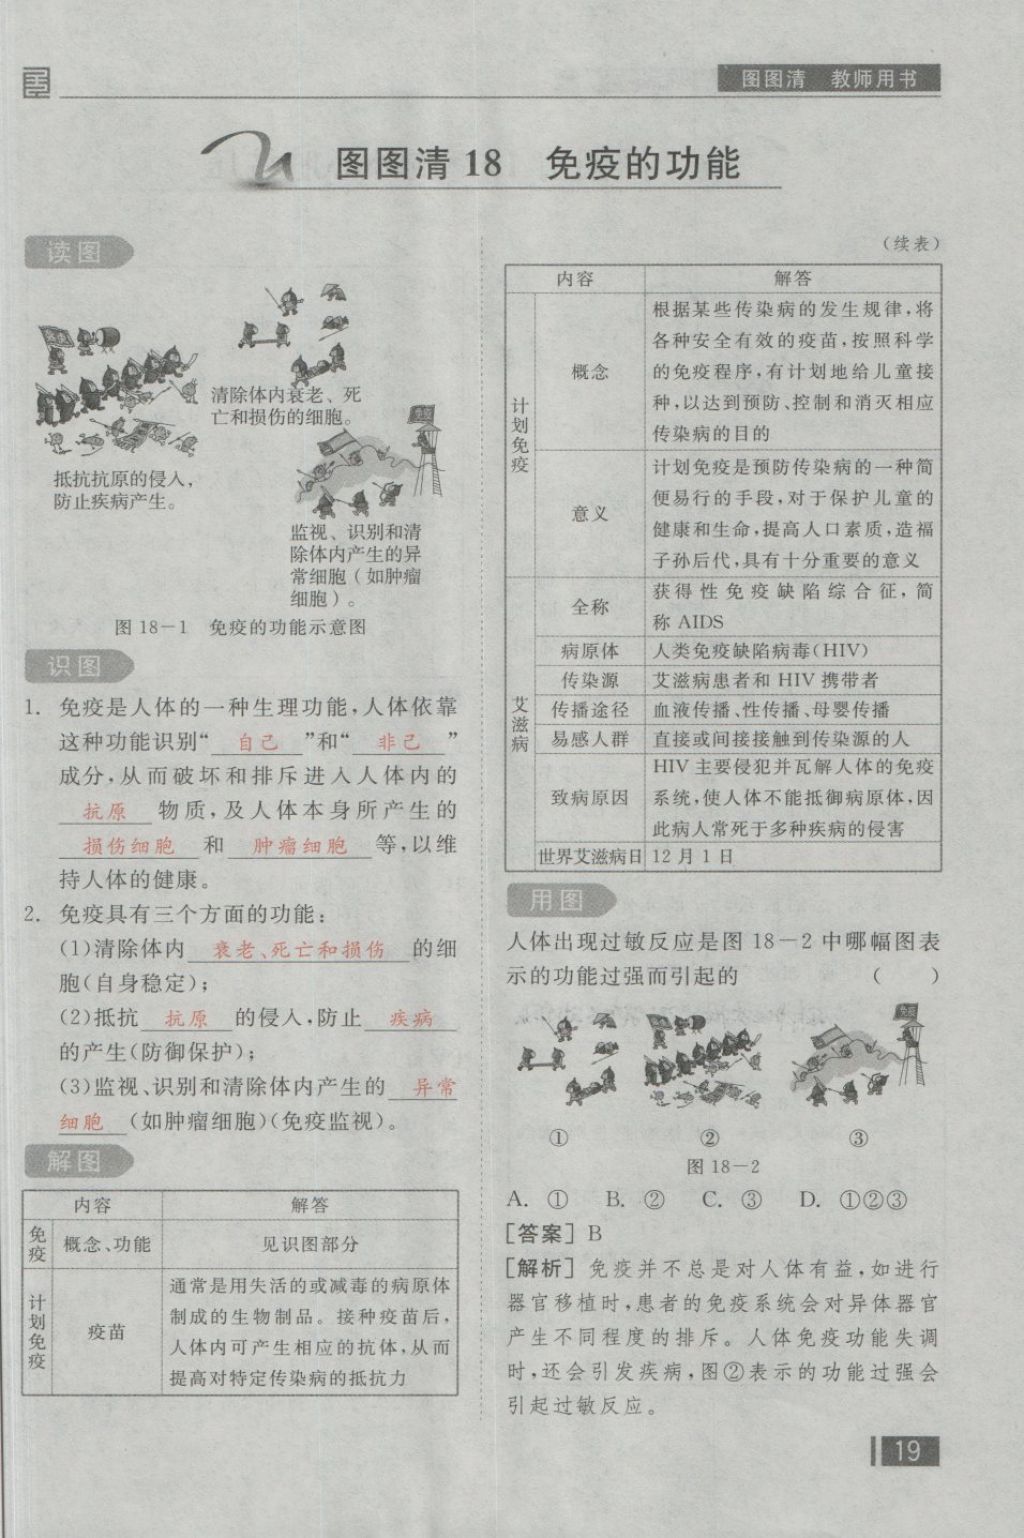 图图清 教师用书
图图清 18 免疫的功能
读图
清除体内衰老、死
亡和损伤的细胞。
抵抗抗原的侵入，
防止疾病产生。
免疫
监视、识别和清
除体内产生的异
常细胞（如肿瘤
细胞）。
图 18－1 免疫的功能示意图
识图
1. 免疫是人体的一种生理功能，人体依靠
这种功能识别“自己”和“非己”
成分，从而破坏和排斥进入人体内的
抗原 物质，及人体本身所产生的
损伤细胞 和 肿瘤细胞 等，以维
持人体的健康。
2. 免疫具有三个方面的功能：
(1)清除体内 衰老、死亡和损伤 的细
胞(自身稳定)；
(2)抵抗 抗原 的侵入，防止 疾病
的产生(防御保护)；
(3)监视、识别和清除体内产生的 异常
细胞 (如肿瘤细胞)(免疫监视)。
解图
内容 解答
免疫 概念、功能 见识图部分
计划免疫 疫苗
通常是用失活的或减毒的病原体
制成的生物制品。接种疫苗后，
人体内可产生相应的抗体，从而
提高对特定传染病的抵抗力
（续表）
内容 解答
计划免疫 概念
根据某些传染病的发生规律，将
各种安全有效的疫苗，按照科学
的免疫程序，有计划地给儿童接
种，以达到预防、控制和消灭相应
传染病的目的
意义
计划免疫是预防传染病的一种简
便易行的手段，对于保护儿童的
健康和生命，提高人口素质，造福
子孙后代，具有十分重要的意义
艾滋病 全称
获得性免疫缺陷综合征，简
称 AIDS
病原体 人类免疫缺陷病毒(HIV)
传染源 艾滋病患者和 HIV 携带者
传播途径 血液传播、性传播、母婴传播
易感人群 直接或间接接触到传染源的人
致病原因
HIV 主要侵犯并瓦解人体的免疫
系统，使人体不能抵御病原体，因
此病人常死于多种疾病的侵害
世界艾滋病日 12 月 1 日
用图
人体出现过敏反应是图 18－2 中哪幅图表
示的功能过强而引起的 （ ）
免疫
① ② ③
图 18－2
A. ① B. ② C. ③ D. ①②③
[答案] B
[解析] 免疫并不总是对人体有益，如进行
器官移植时，患者的免疫系统会对异体器官
产生不同程度的排斥。人体免疫功能失调
时，还会引发疾病，图②表示的功能过强会
引起过敏反应。
19